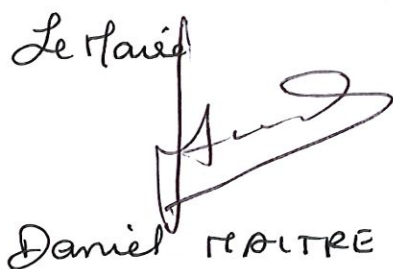 Le Maire
Daniel MAITRE